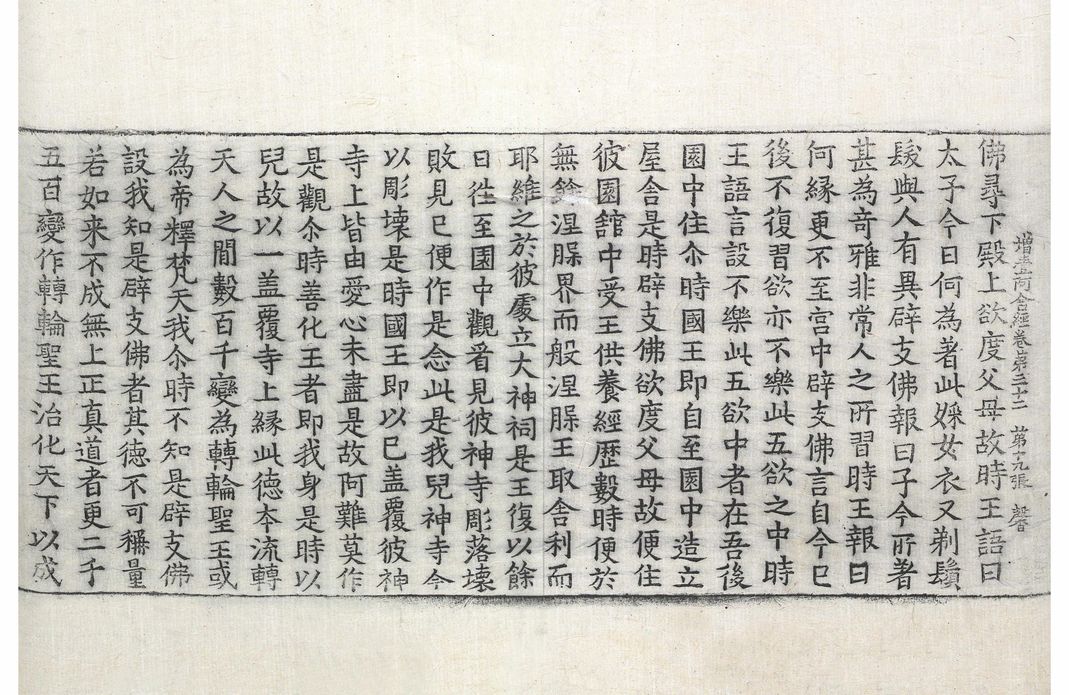 增壹阿含經卷第三十二 第十九張 聲
佛尋下殿上欲度父母故時王語曰
太子今日何爲著此婇女衣又剃鬚
髮與人有異辟支佛報曰子今所著
甚爲奇雅非常人之所習時王報曰
何緣更不至宮中辟支佛言自今已
後不復習欲亦不樂此五欲之中時
王語言設不樂此五欲中者在吾後
園中住尒時國王即自至園中造立
屋舍是時辟支佛欲度父母故便住
彼園舘中受王供養經歷數時便於
無餘涅槃界而般涅槃王取舍利而
耶維之於彼處立大神祠是王復以餘
日往至園中觀看見彼神寺彫落壞
敗見已便作是念此是我兒神寺今
以彫壞是時國王即以已盖覆彼神
寺上皆由愛心未盡是故阿難莫作
是觀尒時善化王者即我身是時以
兒故以一盖覆寺上緣此德夲流轉
天人之間數百千變爲轉輪聖王或
爲帝釋梵天我尒時不知是辟支佛
設我知是辟支佛者其德不可稱量
若如来不成無上正真道者更二千
五百變作轉輪聖王治化天下以成